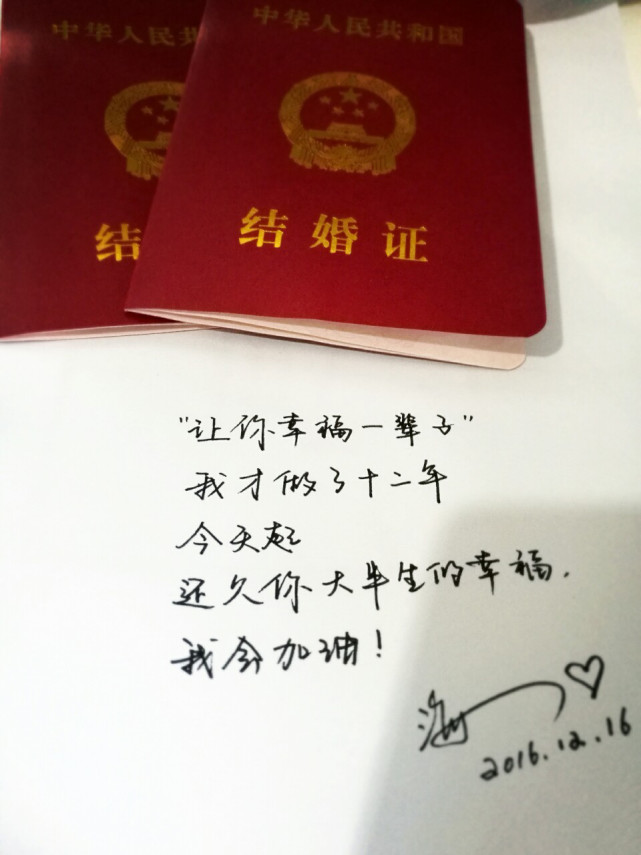 中华人民
中华人民共和国
结
结婚证
"让你幸福一辈子"
我才做了十二年
今天起
还久你大半生的幸福.
我会加油!
2016.12.16